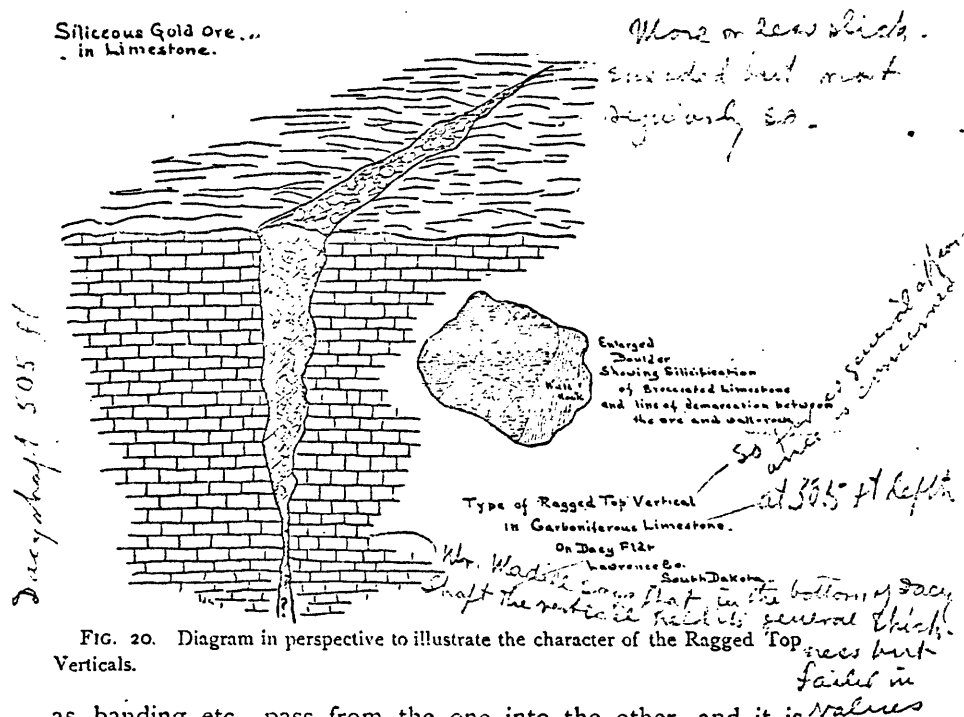 Siliceous Gold Ore
in Limestone.
More or less slick-
ensided but not
so.
Dacy shaft 305 ft
Enlarged
Boulder
Showing Silicification
of Brecciated Limestone
and line of demarcation between
the ore and wall-rock
Wall
Rock
so general
at 305 ft depth
Type of Ragged Top Vertical
in Carboniferous Limestone.
On Dacy Flat
Lawrence Co.
South Dakota.
Mr. says that in the bottom of Dacy
Shaft the vertical held its general thick-
ness but
failed in
values
FIG. 20. Diagram in perspective to illustrate the character of the Ragged Top
Verticals.
as banding etc., pass from the one into the other, and it is